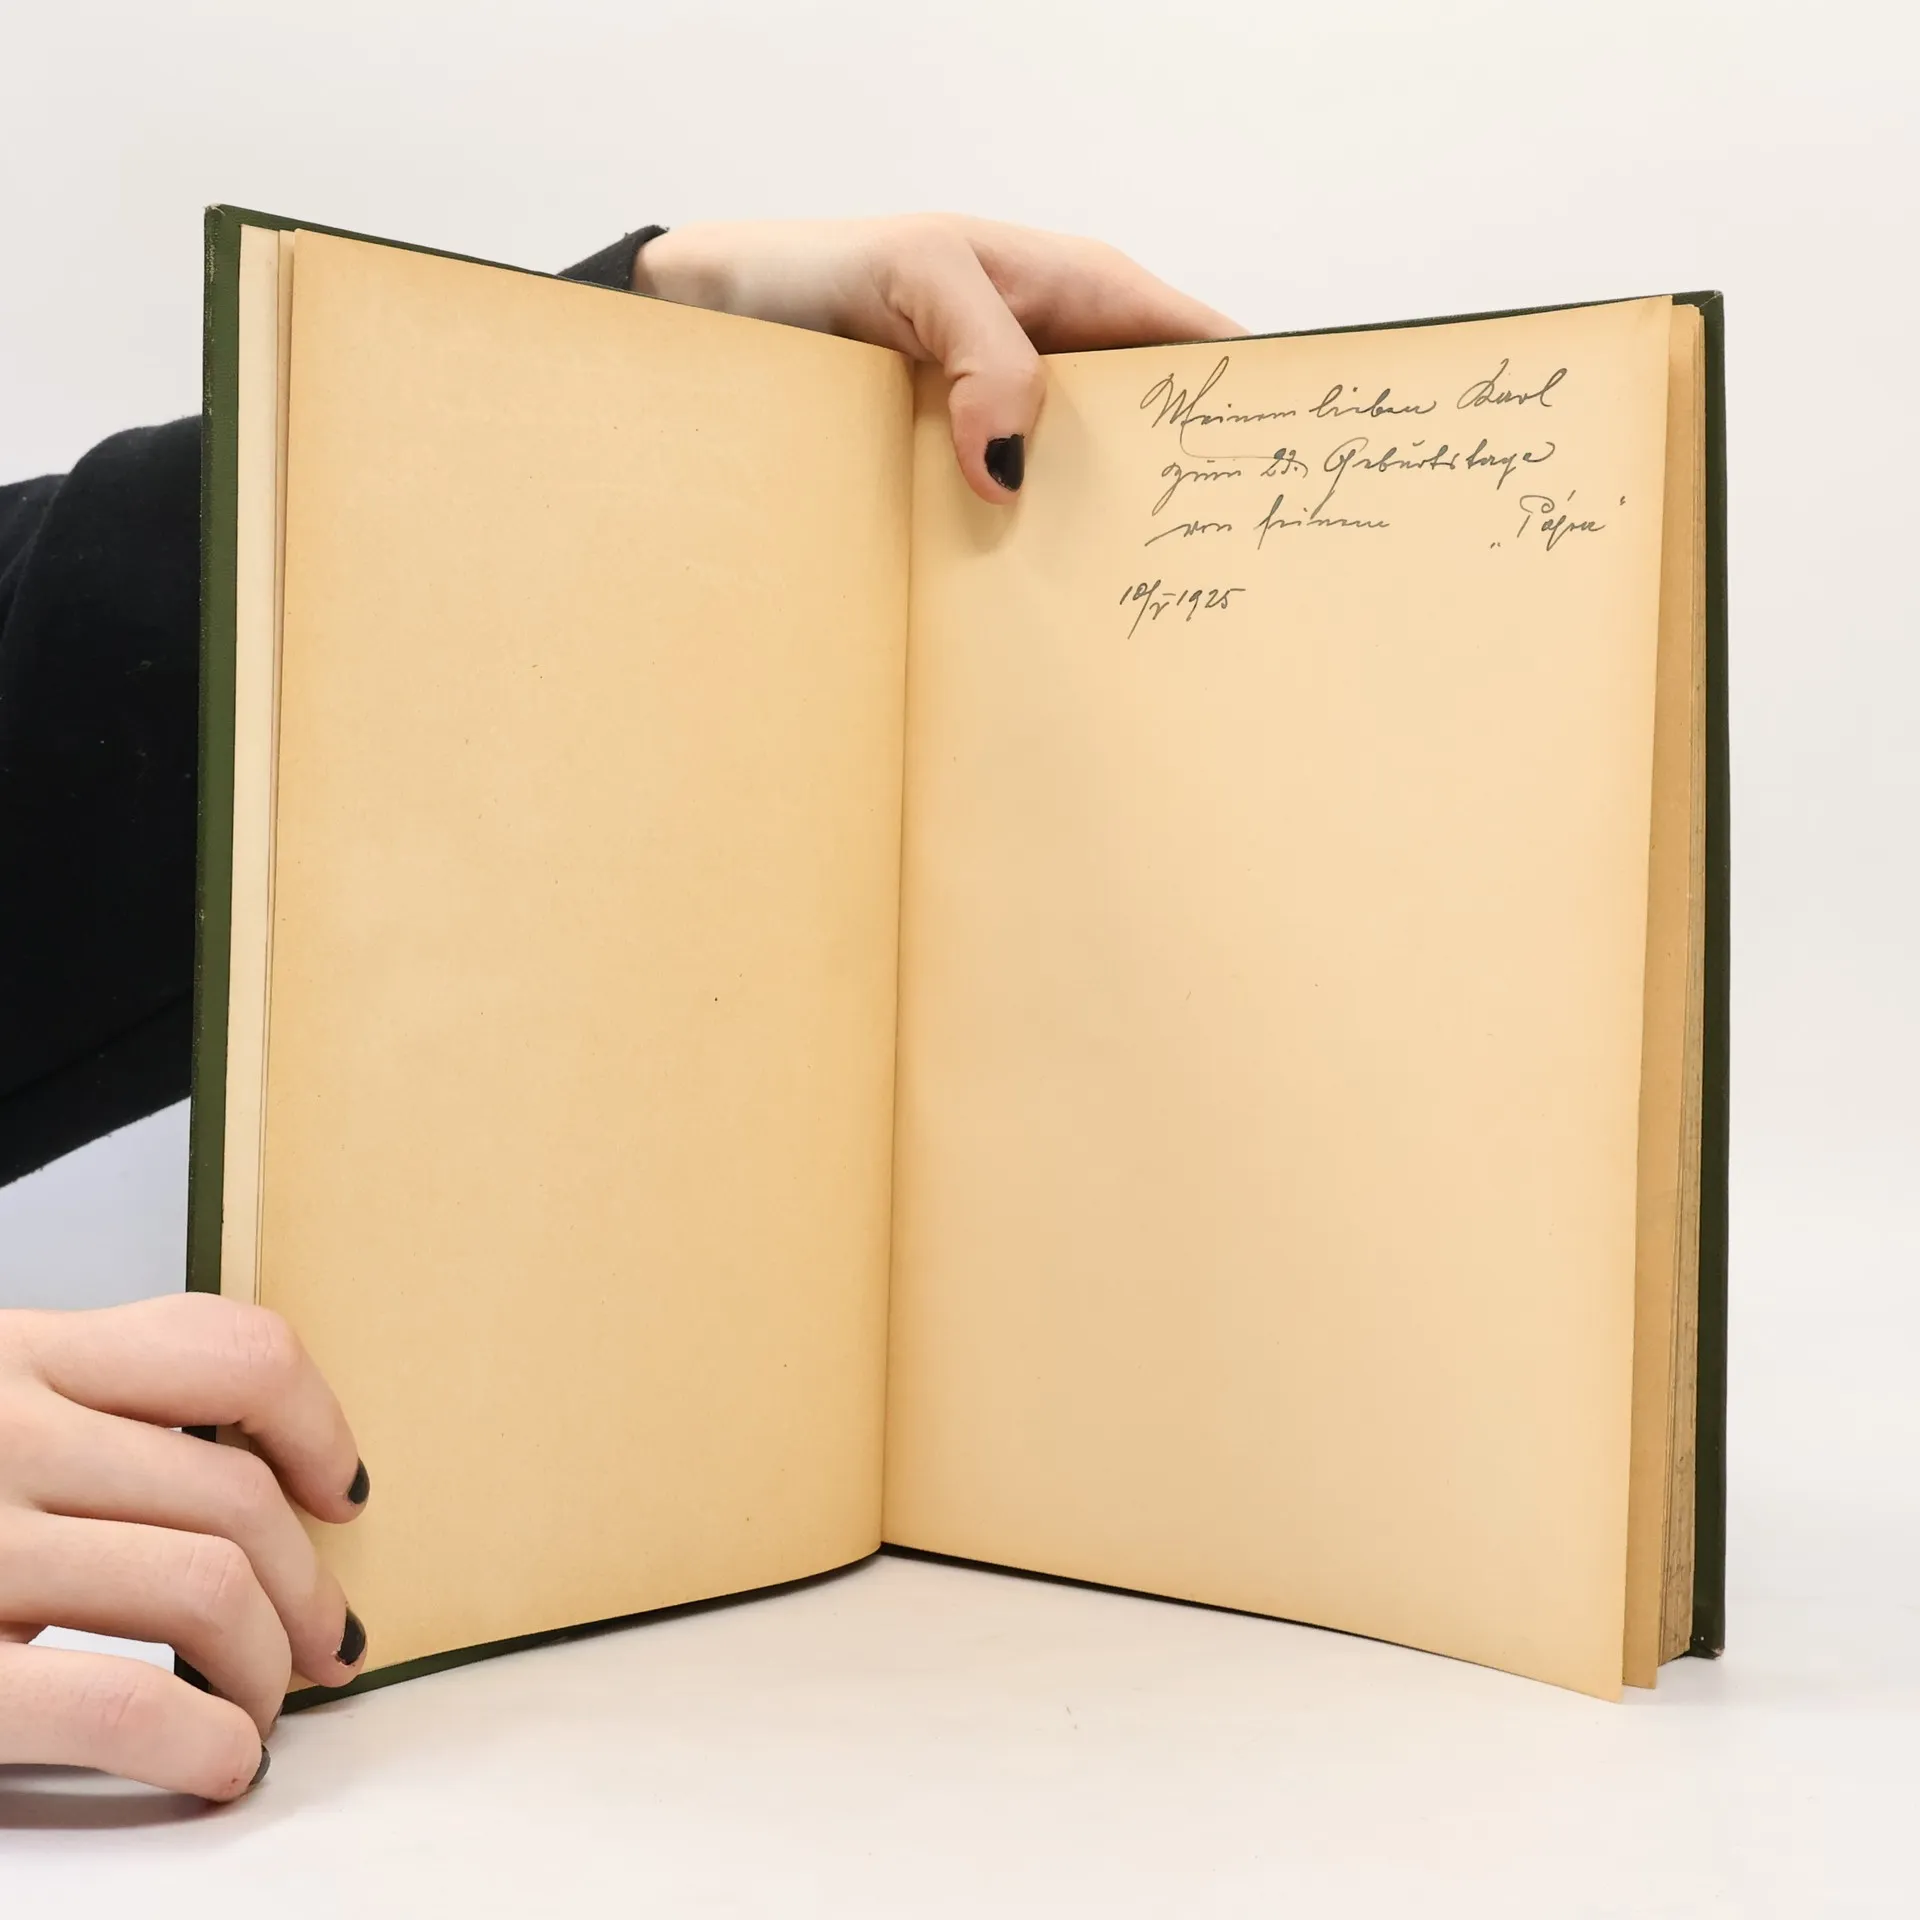 Meinem lieben Karl
zum 23. Geburtstage
von seinem
10/V 1925